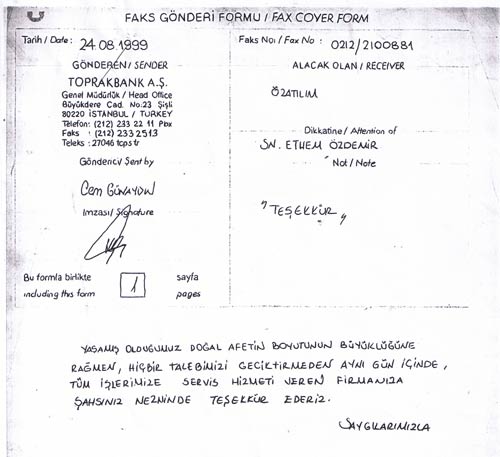 FAKS GÖNDERİ FORMU / FAX COVER FORM
Tarih / Date : 24.08.1999
GÖNDEREN / SENDER
TOPRAKBANK A.Ş.
Genel Müdürlük / Head Office
Büyükdere Cad. No:23 Şişli
80220 İSTANBUL / TURKEY
Telefon: (212) 233 22 11 Pbx
Faks : (212) 233 25 13
Teleks : 27046 tcps tr
Gönderici / Sent by
Cem GÜNAYDIN
İmzası / Signature
Bu formla birlikte
including this form
1
sayfa
pages
Faks No: / Fax No : 0212/2100881
ALACAK OLAN / RECEIVER
ÖZATILIM
Dikkatine / Attention of
SN. ETHEM ÖZDEMİR
Not / Note
" TEŞEKKÜR "
YAŞAMIŞ OLDUĞUMUZ DOĞAL AFETİN BOYUTUNUN BÜYÜKLÜĞÜNE
RAĞMEN, HİÇBİR TALEBİMİZİ GECİKTİRMEDEN AYNI GÜN İÇİNDE,
TÜM İŞLERİMİZE SERVİS HİZMETİ VEREN FİRMANIZA
ŞAHSINIZ NEZNİNDE TEŞEKKÜR EDERİZ.
SAYGILARIMIZLA